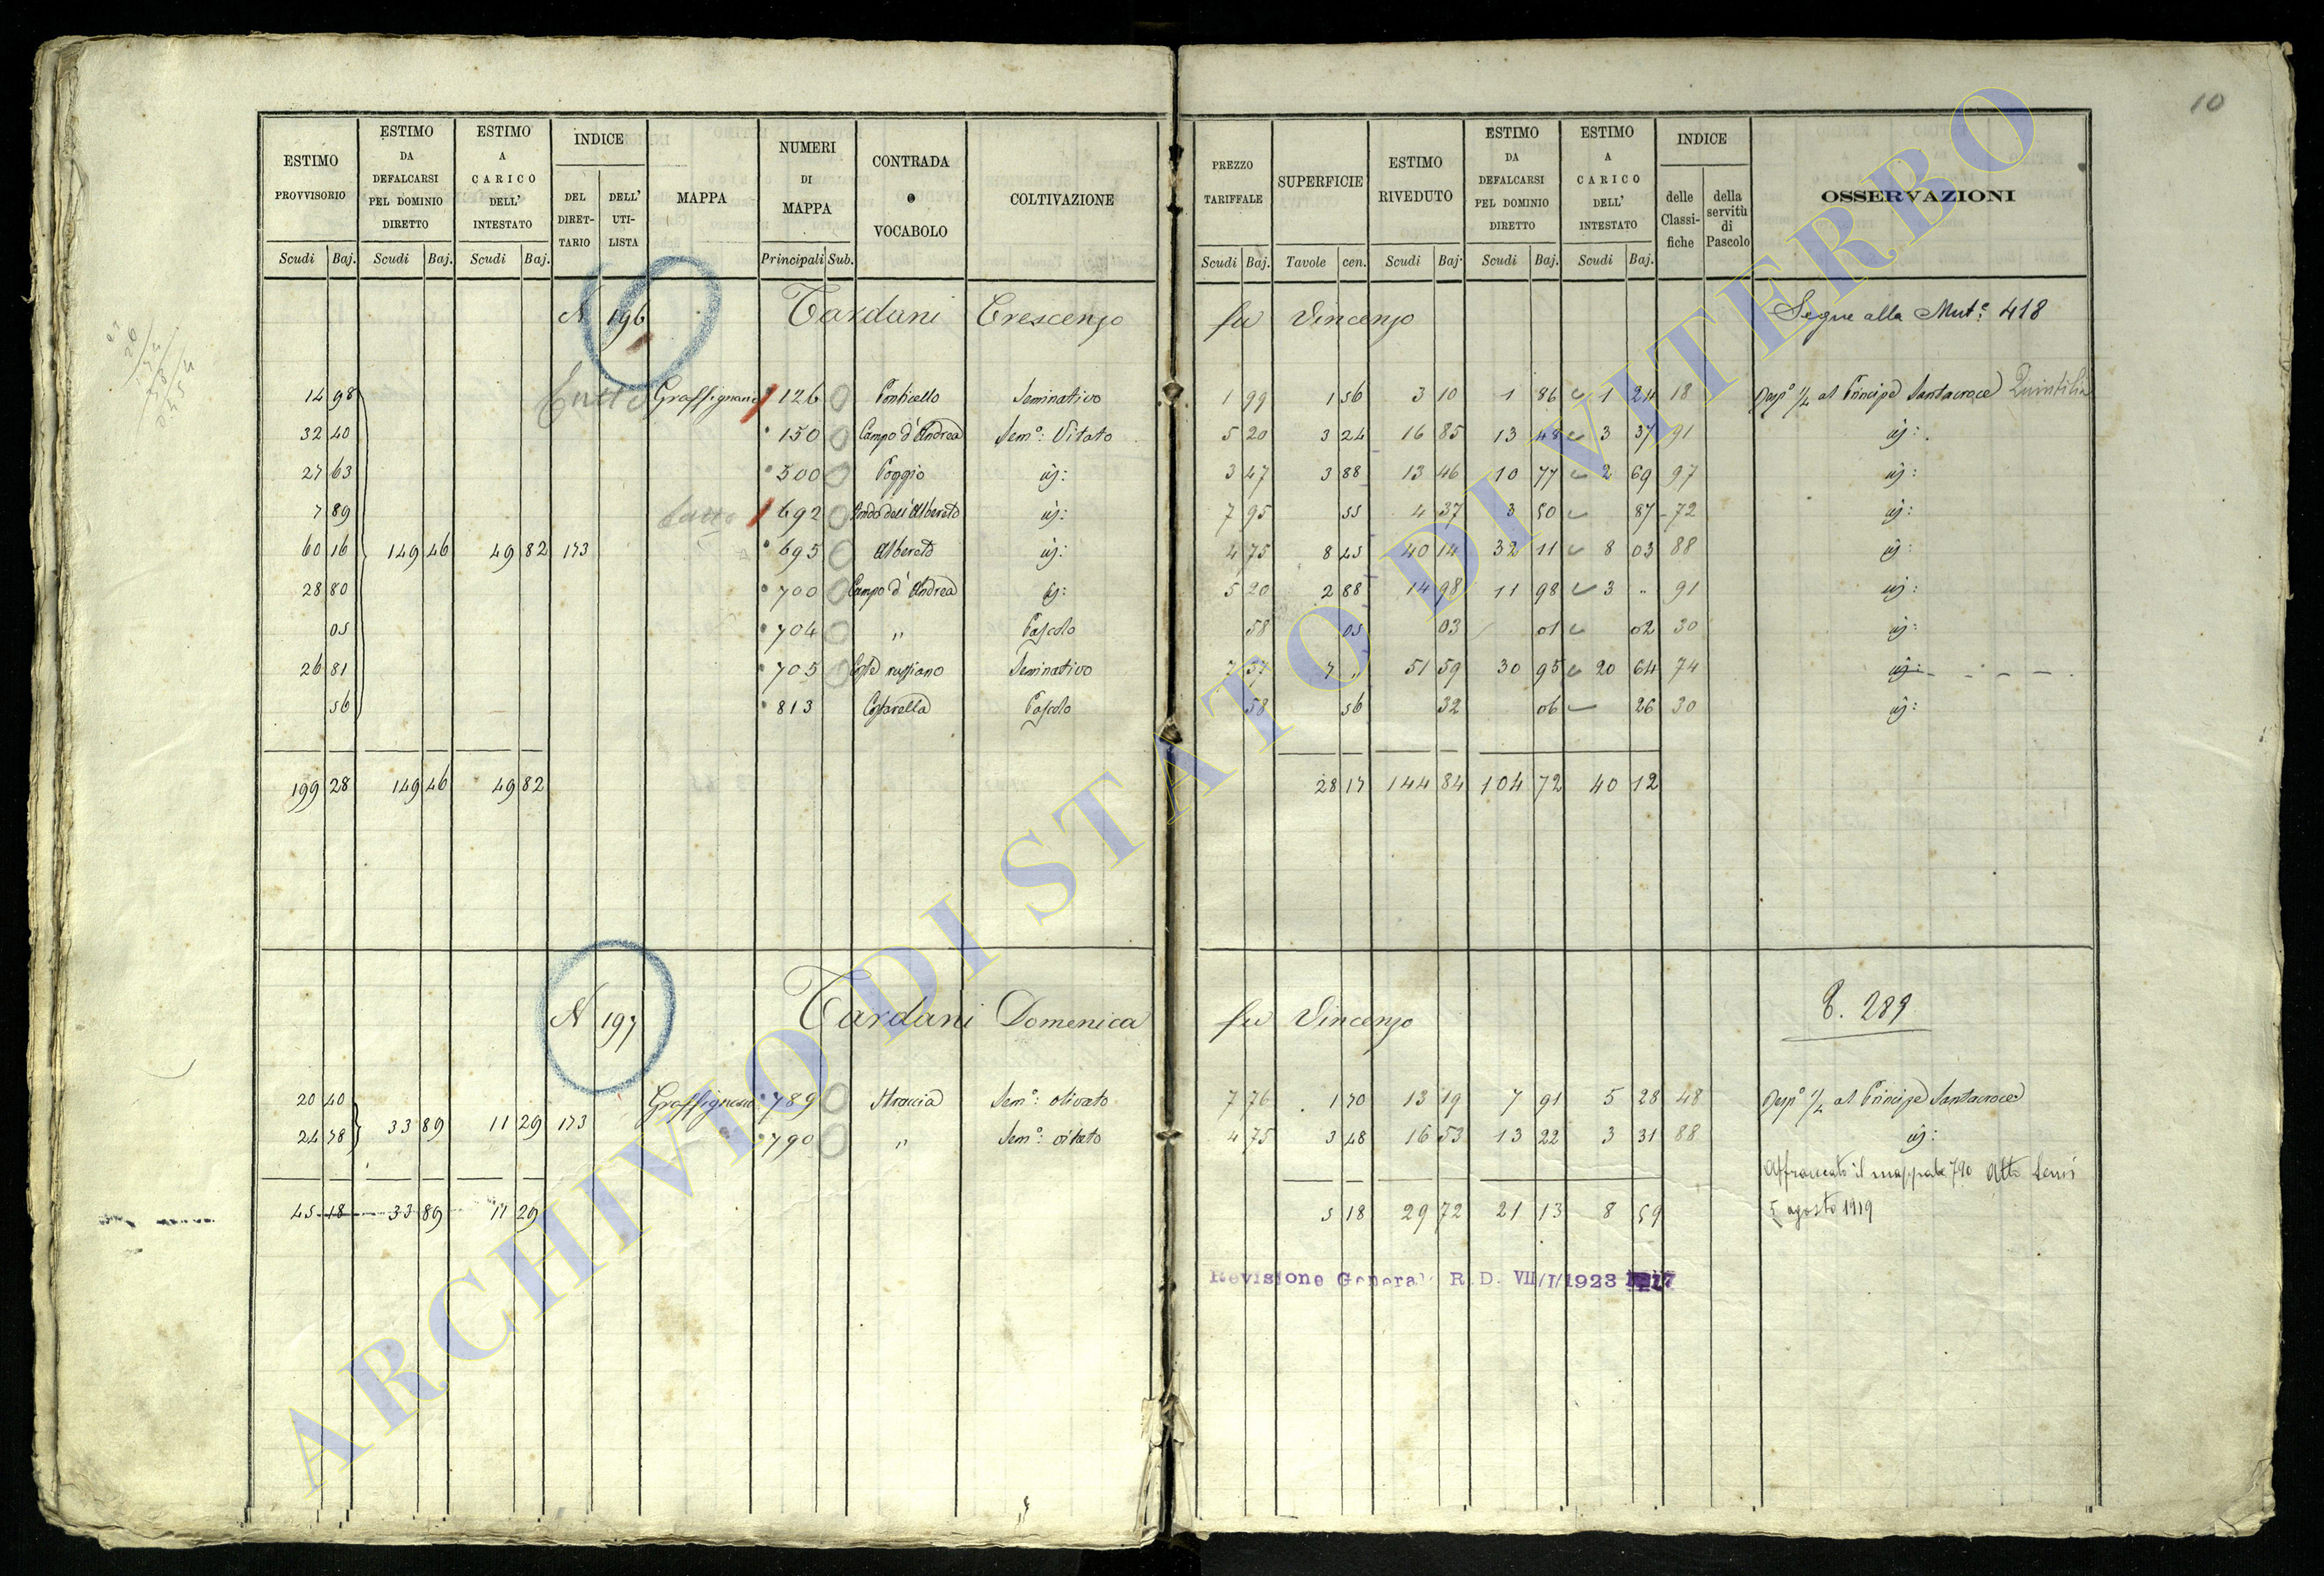 10
ESTIMO PROVVISORIO | ESTIMO DA DEFALCARSI PEL DOMINIO DIRETTO | ESTIMO A CARICO DELL' INTESTATO | INDICE DEL DIRETTARIO | DELL' UTILISTA | MAPPA | NUMERI DI MAPPA | CONTRADA o VOCABOLO | COLTIVAZIONE | PREZZO TARIFFALE | SUPERFICIE | ESTIMO RIVEDUTO | ESTIMO DA DEFALCARSI PEL DOMINIO DIRETTO | ESTIMO A CARICO DELL' INTESTATO | INDICE delle Classifiche | della servitù di Pascolo | OSSERVAZIONI
Scudi | Baj. | Scudi | Baj. | Scudi | Baj. | Principali | Sub. | Scudi | Baj. | Tavole | cen. | Scudi | Baj. | Scudi | Baj. | Scudi | Baj.
N 196 Tardani Crescenzo fu Vincenzo Segue alla Mut.e 418
14 98 Graffignano 126 Ponticello Seminativo 1 99 1 56 3 10 1 86 1 24 18 Resp.e 1/4 al Principe Santacroce Quintilia
32 40 150 Campo d'Andrea Sem.o: Vitato 5 20 3 24 16 85 13 48 3 37 91 id:
27 63 500 Poggio id: 3 47 3 88 13 46 10 77 2 69 97 id:
7 89 692 Fondo dell'Albereto id: 7 95 55 4 37 3 50 87 72 id:
60 16 149 46 49 82 173 695 Albereto id: 4 75 8 45 40 14 32 11 8 03 88 id:
28 80 700 Campo d'Andrea id: 5 20 2 88 14 98 11 98 3 .. 91 id:
05 704 " Pascolo 58 05 03 01 02 30 id:
26 81 705 Seminativo 7 37 7 " 51 59 30 95 20 64 74 id:
56 813 Costarella Pascolo 58 56 32 06 26 30 id:
199 28 149 46 49 82 28 17 144 84 104 72 40 12
N 197 Tardani Domenica fu Vincenzo P. 289
20 40 Graffignano 789 Straccia Sem.o: olivato 7 76 1 70 13 19 7 91 5 28 48 Resp.e 1/4 al Principe Santacroce
24 78 33 89 11 29 173 790 " Sem.o: vitato 4 75 3 48 16 53 13 22 3 31 88 id:
Affrancato il mappale 790 Atto
45 18 33 89 11 29 5 18 29 72 21 13 8 59 5 agosto 1919
Revisione Generale R. D. VII/I/1923 N. 17
ARCHIVIO DI STATO DI VITERBO